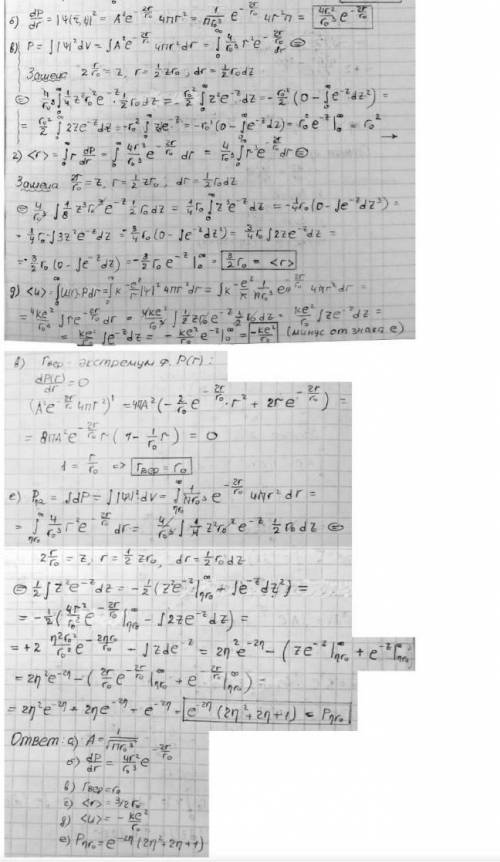 б) dP/dr = |Ψ(r,φ)|² = A²e^(-2r/r₀) 4πr² = 1/(πr₀³) e^(-2r/r₀) 4r²π = 4r²/r₀³ e^(-2r/r₀)
в) P = ∫|Ψ|²dV = ∫A²e^(-2r/r₀) 4πr²dr = ∫₀^∞ 4/r₀³ r²e^(-2r/r₀) dr ⊜
Замена 2r/r₀ = z, r = 1/2 zr₀, dr = 1/2 r₀dz
⊜ 4/r₀³ ∫₀^∞ 1/4 z²r₀²e^(-z) · 1/2 r₀dz = - r₀²/2 ∫₀^∞ z²e^(-z)dz = - r₀²/2 (0 - ∫e^(-z)dz²) =
= r₀²/2 ∫₀^∞ 2ze^(-z)dz = -r₀² ∫₀^∞ ze^(-z) = -r₀² (0 - ∫e^(-z)dz) = r₀²e^(-z)|₀^∞ = r₀² →
г) <r> = ∫₀^∞ r dP/dr = ∫₀^∞ 4r³/r₀³ e^(-2r/r₀) dr = 4/r₀³ ∫₀^∞ r³e^(-2r/r₀) dr ⊜
Замена 2r/r₀ = z, r = 1/2 zr₀, dr = 1/2 r₀dz
⊜ 4/r₀³ ∫₀^∞ 1/8 z³r₀³e^(-z) 1/2 r₀dz = 1/4 r₀ ∫₀^∞ z³e^(-z)dz = -1/4 r₀ (0 - ∫e^(-z)dz³) =
= 1/4 r₀ ∫3z²e^(-z)dz = -3/4 r₀ (0 - ∫e^(-z)dz²) = 3/4 r₀ ∫2ze^(-z)dz =
= -3/2 r₀ (0 - ∫e^(-z)dz) = -3/2 r₀ e^(-z)|₀^∞ = 3/2 r₀ = <r>
= 4ke²/r₀³ ∫re^(-2r/r₀) dr = 4ke²/r₀³ ∫1/2 zr₀e^(-z) 1/2 r₀dz = ke²/r₀ ∫ze^(-z)dz =
= ke²/r₀ ∫e^(-z)dz = - ke²/r₀ e^(-z)|₀^∞ = -ke²/r₀ (минус от знака e)
в) rвер - экстремум ф. P(r):
dP(r)/dr = 0
(A²e^(-2r/r₀) 4πr²)' = 4πA² (-2/r₀ e^(-2r/r₀) · r² + 2re^(-2r/r₀)) =
= 8πA²e^(-2r/r₀) r (1 - 1/r₀ r) = 0
1 = r/r₀ => rвер = r₀
е) = ∫dP = ∫|Ψ|²dV = ∫_(ηr₀)^∞ 1/(πr₀³) e^(-2r/r₀) 4πr²dr =
= ∫_(ηr₀)^∞ 4/r₀³ r²e^(-2r/r₀) dr = 4/r₀³ ∫1/4 z²r₀²e^(-z) 1/2 r₀dz ⊜
2r/r₀ = z, r = 1/2 zr₀, dr = 1/2 r₀dz
⊜ 1/2 ∫z²e^(-z)dz = -1/2 (z²e^(-z)|_(ηr₀)^∞ + ∫e^(-z)dz²) =
= -1/2 (4r²/r₀² e^(-2r/r₀)|_(ηr₀)^∞ - ∫2ze^(-z)dz) =
= +2 η²r₀²/r₀² e^(-2ηr₀/r₀) - ∫zde^(-z) = 2η²e^(-2η) - (ze^(-z)|_(ηr₀)^∞ + e^(-z)|_(ηr₀)^∞) =
= 2η²e^(-2η) - (2r/r₀ e^(-2r/r₀)|_(ηr₀)^∞ + e^(-2r/r₀)|_(ηr₀)^∞) =
= 2η²e^(-2η) + 2ηe^(-2η) + e^(-2η) = e^(-2η) (2η² + 2η + 1) = Pηr₀
Ответ: а) A = 1/√(πr₀³)
б) dP/dr = 4r²/r₀³ e^(-2r/r₀)
в) rвер = r₀
г) <r> = 3/2 r₀
д) <u> = - ke²/r₀
е) Pηr₀ = e^(-2η) (2η² + 2η + 1)